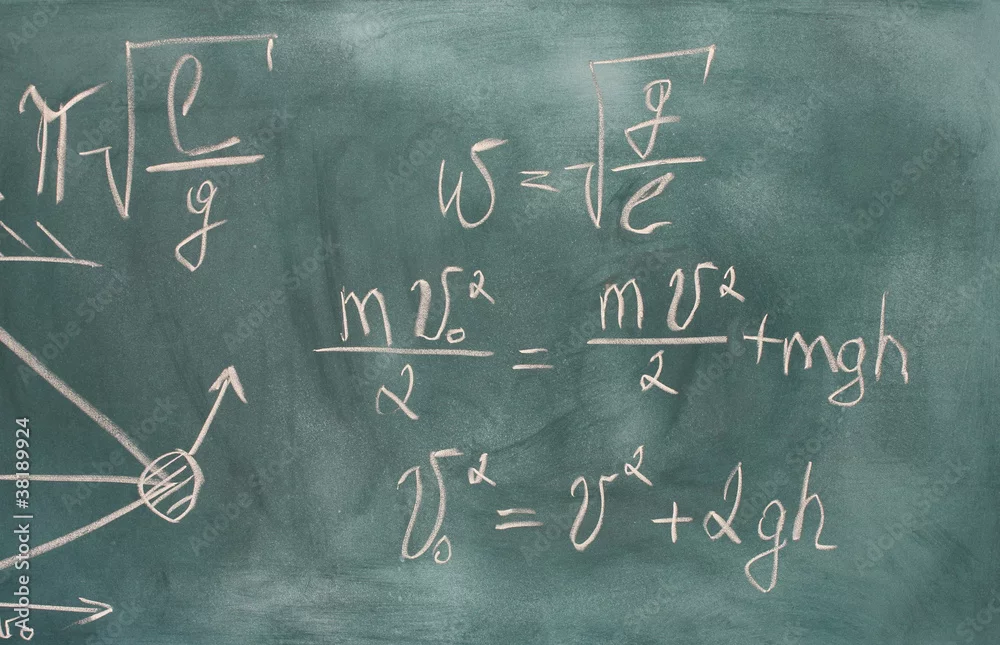 π√(l/g)
ω = √(g/l)
mv₀²/2 = mv²/2 + mgh
v₀² = v² + 2gh
Adobe Stock | #38189924